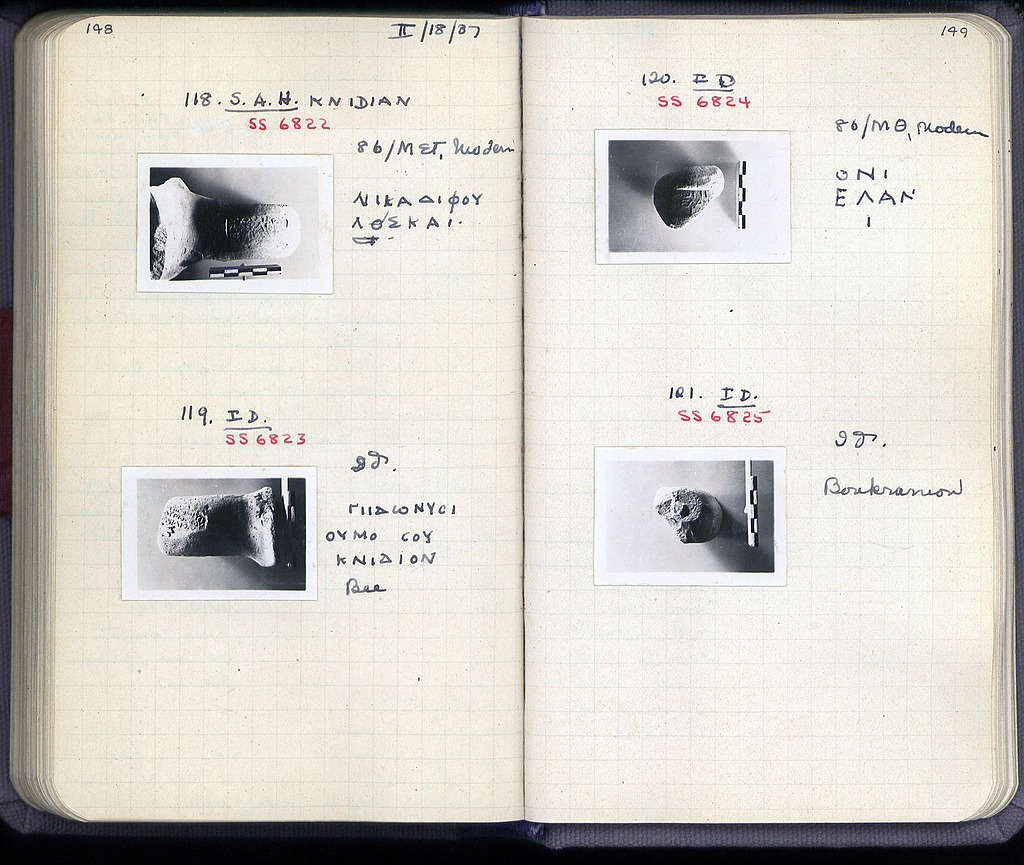 148
II/18/37
118. S. A. H. KNIDIAN
SS 6822
86/ΜΣΤ, Modern
ΝΙΚΑΔΙΦΟΥ
ΛΘΣΚΑΙ.
119. ID.
SS 6823
Id.
ΓΙΙΔΙΟΝΥCΙ
ΟΥΜΟ COY
ΚΝΙΔΙΟΝ
Bee
149
120. ID
SS 6824
86/ΜΘ, Modern
ΟΝΙ
ΕΛΑΝ
Ι
121. ID.
SS 6825
Id.
Boukranion